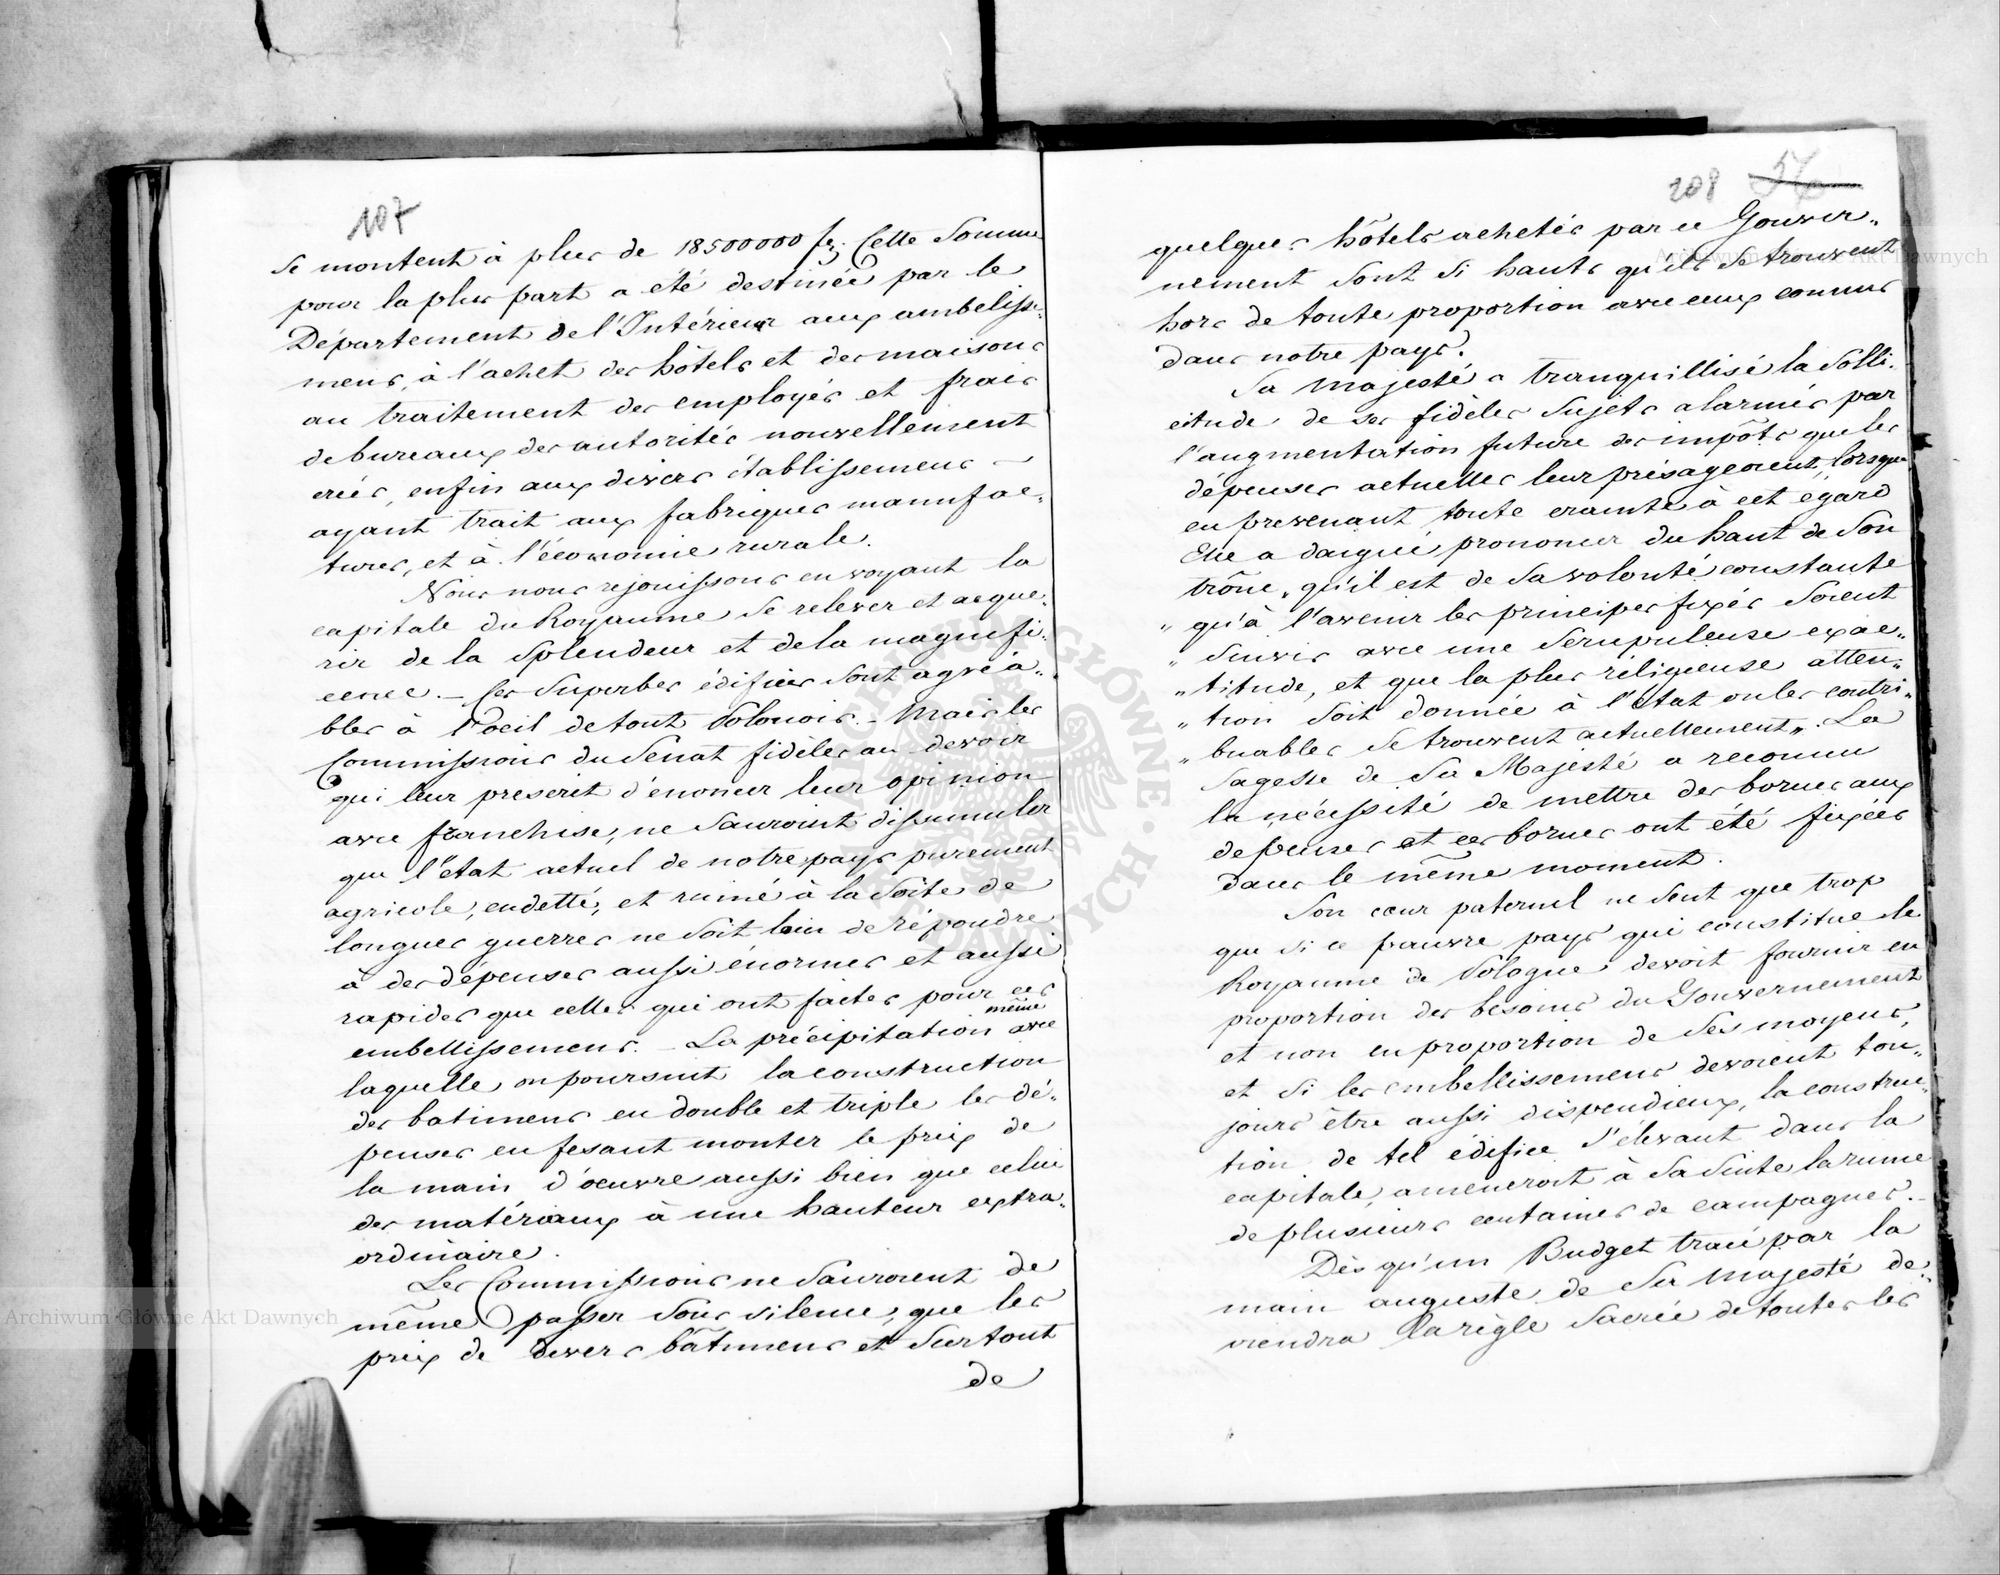 107
se montent à plus de 18500000 fs. Cette Somme
pour la plus part a été destinée par le
Département de l'Intérieur aux ambelisse-
mens, à l'achet des hôtels et des maisons
au traitement des employés et frais
de bureaux des autorités nouvellement
créés, enfin aux divers établissemens —
ayant trait aux fabriques manufac-
tures, et à l'économie rurale.
Nous nous rejouissons en voyant la
capitale du Royaume se relever et acque-
rir de la Splendeur et de la magnifi-
cence. — Ces Superbes édifices sont agréa-
bles à l'oeil de tout Polonois. — Mais les
Commissions du Senat fidèles au devoir
qui leur prescrit d'énoncer leur opinion
avec franchise, ne Sauroient dissimuler
que l'état actuel de notre pays purement
agricole, endetté, et ruiné à la Soite de
longues guerres ne soit loin de répondre
à des dépenses aussi énormes et aussi
rapides que celles qui ont faites pour ces
embellissemens. — La précipitation même avec
laquelle on poursuit la construction
des batimens en double et triple les dé-
penses en fesant monter le prix de
la main d'oeuvre aussi bien que celui
des matériaux à une hauteur extra-
ordinaire.
Les Commissions ne Sauroient de
même passer sous silence, que les
prix de divers bâtimens et Surtout
de
208 56
quelques hôtels achetés par ce Gouver-
nement sont si hauts qu'ils se trouvent
hors de toute proportion avec ceux connus
dans notre pays.
Sa Majesté a tranquillisé la Solli-
citude de ses fidèles Sujets alarmés par
l'augmentation future des impôts que les
dépenses actuelles leur présageoient, lorsque
en prevenant toute crainte à cet égard
Elle a daigné prononcer du haut de Son
trône „qu'il est de Sa volonté constante
„ qu'à l'avenir les principes fixés Soient
„ Suivis avec une Serupuleuse exac-
„ titude, et que la plus réligieuse atten-
„ tion soit donnée à l'état ou les contri-
„ buables se trouvent actuellement". La
sagesse de Sa Majesté a reconnu
la nécessité de mettre des bornes aux
depenses et ces bornes ont été fixées
dans le même moment.
Son cœur paternel ne Sent que trop
que si ce pauvre pays qui constitue le
Royaume de Pologne devoit fournir en
proportion des besoins du Gouvernement
et non en proportion de Ses moyens,
et si les embellissemens devoient tou-
jours être aussi dispendieux, la construc-
tion de tel édifice S'élevant dans la
capitale, ameneroit à Sa Suite la ruine
de plusieurs centaines de campagnes. —
Dès qu'un Budget tracé par la
main auguste de Sa Majesté de-
viendra la règle Sacrée de toutes les
Archiwum Główne Akt Dawnych
Archiwum Główne Akt Dawnych
ARCHIWUM GŁÓWNE AKT DAWNYCH